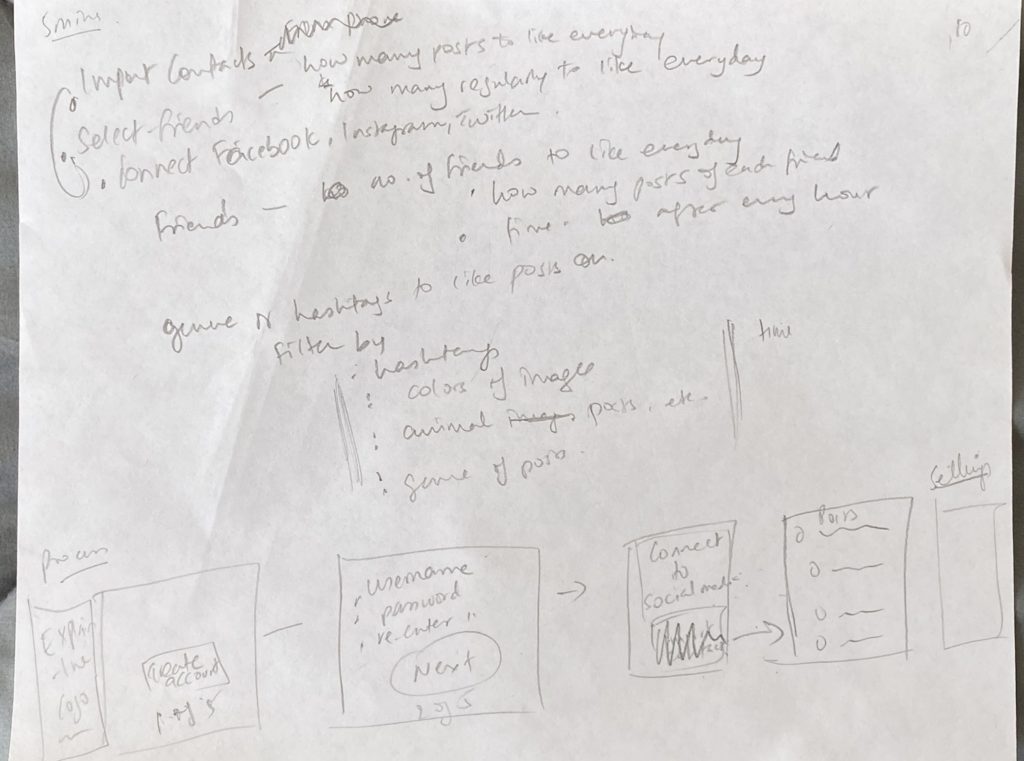 5 mins
10
Import Contacts - from phone
Select friends - how many posts to like everyday
how many regularly to like everyday
Connect Facebook, Instagram, Twitter.
friends - no. of friends to like everyday
how many posts of each friend
time. after every hour
genre or hashtags to like posts on.
filter by
hashtags
colors of images
animal posts, etc.
genre of posts.
time
Process
Settings
logo
Create
account
username
password
re-enter "
Next
2 of 5
Connect
to
social media